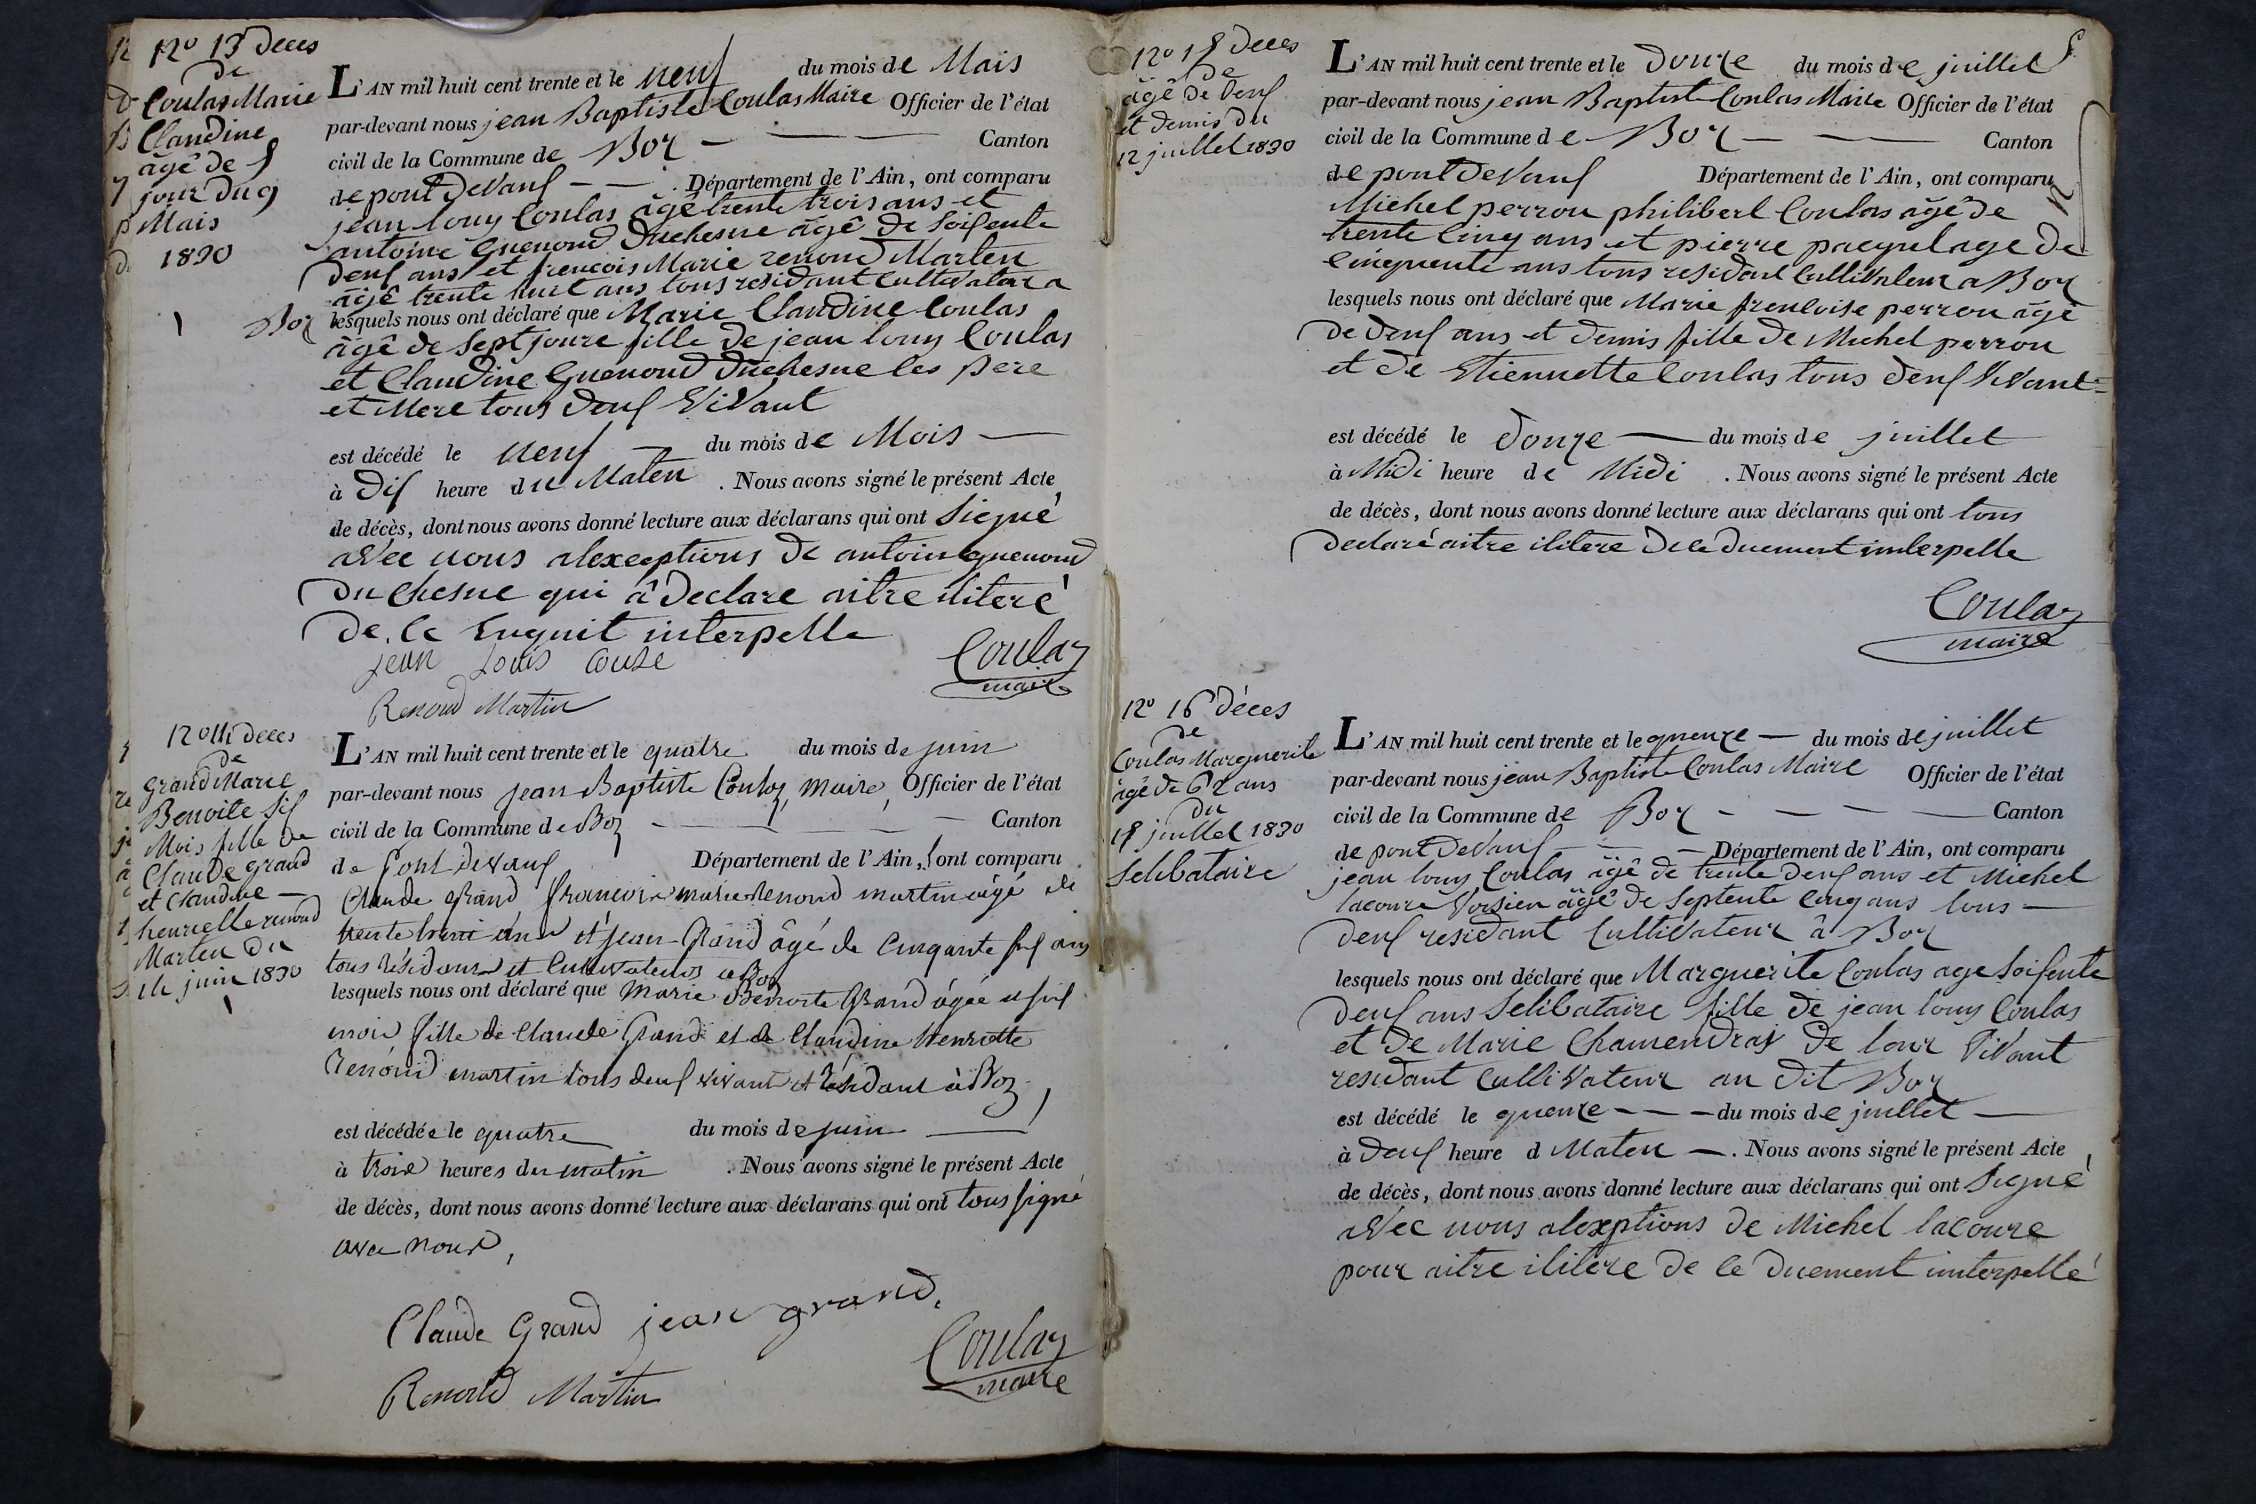 N° 13 Deces
de
Coulas Marie
Claudine
âgé de 8
jour du 9
Mais
1830
L'AN mil huit cent trente et le neuf du mois de Mais
par-devant nous jean Baptiste Coulas Maire Officier de l'état
civil de la Commune de Boz Canton
de pont DeVauf . Département de l'Ain, ont comparu
jean louy Coulas âgé trente trois ans et
antoine Guenoud Duchesne âgé de Soifente
deuf ans et frencois Marie renoud Marten
âgé trente huit ans tous residant Cultivatar a
Boz lesquels nous ont déclaré que Marie Claudine Coulas
âgé de Sept joure fille de jean louy Coulas
et Claudine Guenoud Duchesne les pere
et Mere tous deuf ViVant
est décédé le neuf du mois de Mois
à Dif heure du Maten . Nous avons signé le présent Acte
de décès, dont nous avons donné lecture aux déclarans qui ont Siegné
aVéc nous alexceptions de antoin guenoud
Duchesne qui â Declare aitre ilitere
de. ce Enquit interpelle
jean Louis Couse
Coulaz
maire
Renoud Martin
N° 14 Deces
de
Grand Marie
Benoite Sif
Mois fille de
Claude grand
et Claudine
henrielle renoud
Marten du
4 juin 1830
L'AN mil huit cent trente et le quatre du mois de juin
par-devant nous jean Baptiste Coulaz, maire, Officier de l'état
civil de la Commune de Boz Canton
de Pont devauf Département de l'Ain, ont comparu
Claude Grand françois marie Renoud martin âgé de
trente huit ans et jean Grand âgé de Cinqante fif ans
tous résidant et Cultivateurs a Boz
lesquels nous ont déclaré que Marie Benoite Grand âgée de sif
mois fille de Claude Grand et de Claudine Henriette
Renoud martin tous deuf vivant et résidant à Boz
est décédée le quatre du mois de juin
à trois heures du matin . Nous avons signé le présent Acte
de décès, dont nous avons donné lecture aux déclarans qui ont tous signé
avec nous,
Claude Grand jean grand,
Coulaz
maire
Renoud Martin
N° 15 Deces
de
âgé de deuf
et demis du
12 juillet 1830
8
L'AN mil huit cent trente et le Douze du mois de juillet
par-devant nous jean Baptist Coulas Maire Officier de l'état
civil de la Commune de Boz Canton
de pont DeVauf Département de l'Ain, ont comparu
Michel perrou philibert Coulas âgé de
trente Cinq ans et pierre pacqul age de
Cinquente ans tous residant CulliVateur a Boz
lesquels nous ont déclaré que Marie frenloise perrou âgé
de deuf ans et demis fille de Michel perrou
et de Etiennette Coulas tous deuf ViVant
est décédé le Douze du mois de juillet
à Midi heure de Midi . Nous avons signé le présent Acte
de décès, dont nous avons donné lecture aux déclarans qui ont tous
declaré aitre ilitere de ce duement imterpelle
Coulaz
maire
N° 16 déces
de
Coulas Marguerite
âgé de 62 ans
du
15 juillet 1830
Selibataire
L'AN mil huit cent trente et le quenze du mois de juillet
par-devant nous jean Baptist Coulas Maire Officier de l'état
civil de la Commune de Boz Canton
de pont DeVauf Département de l'Ain, ont comparu
jean louy Coulas âgé de trente deuf ans et Michel
lacoure Voisien âgé de Septente Cinq ans tous
deuf residant CultiVateur â Boz
lesquels nous ont déclaré que Marguerite Coulas age Soifente
deuf ans Selibataire fille de jean louy Coulas
et de Marie Chamendraz De lour ViVant
residant CulliVateur au dit Boz
est décédé le quenze du mois de juillet
à deuf heure d Maten . Nous avons signé le présent Acte
de décès, dont nous avons donné lecture aux déclarans qui ont Siegné
aVéc nous alexptions de Michel lacoure
pour aitre ilitere de ce duement imterpellé